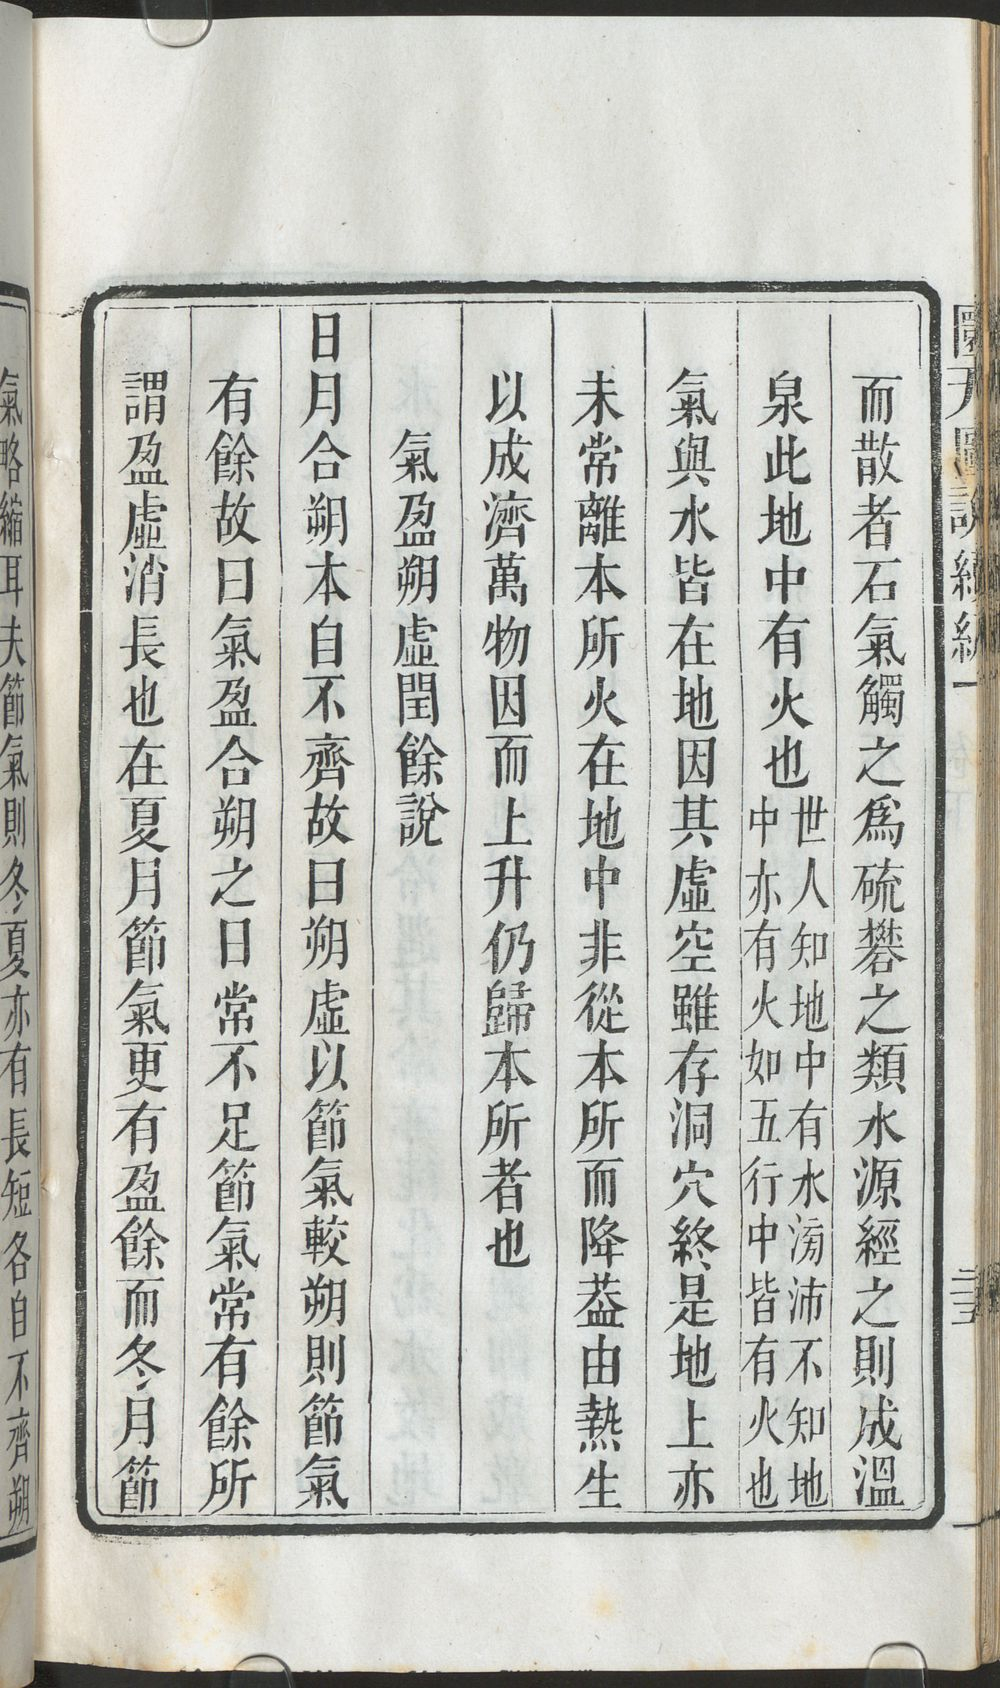 而散者石氣觸之爲硫礬之類水源經之則成溫
泉此地中有火也世人知地中有水滂沛不知地
中亦有火如五行中皆有火也
氣與水皆在地因其虛空雖存洞穴終是地上亦
未常離本所火在地中非從本所而降葢由熱生
以成濟萬物因而上升仍歸本所者也
氣盈朔虛閏餘說
日月合朔本自不齊故曰朔虛以節氣較朔則節氣
有餘故曰氣盈合朔之日常不足節氣常有餘所
謂盈虛消長也在夏月節氣更有盈餘而冬月節
氣略縮耳夫節氣則冬夏亦有長短各自不齊朔